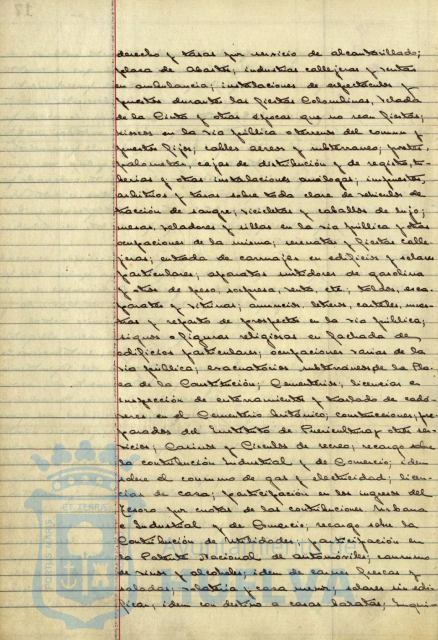 derecho y tasas por servicio de alcantarillado;
plaza de Abastos; industrias callejeras y ventas
en ambulancia; instalaciones de espectáculos y
puestos durante las fiestas Colombinas, Velada
de la Cinta y otras épocas que no sean fiestas;
kioscos en la vía pública o terrenos del común y
puestos fijos; cables aéreos y subterráneo; postes,
palometas, cajas de distribución y de registo, tu-
berias y otras instalaciones análogas; impuestos,
arbitrios y tasas sobre toda clase de vehículos de
tracción de sangre; bicicletas y caballos de lujo;
mesas, veladores y sillas en la vía pública y otras
ocupaciones de la misma; serenatas y fiestas calle-
jeras; entrada de carruajes en edificios y solares
particulares; aparatos surtidores de gasolina
y otros de peso, sorpresa, venta, etc; toldos, esca-
parates y vitrinas; anuncios, letreros, carteles, mues-
tras y reparto de prospectos en la vía pública;
signos o figuras religiosas en fachada de
edificios particulares; ocupaciones varias de la
vía pública; evacuatorios subterráneos de la Pla-
za de la Constitución; Cementerios; licencias e
inspección de enterramientos y traslado de cadá-
veres en el Cementerio británico; contrucciones; pre-
parados del Instituto de Puericultura y otros ser-
vicios; Casinos y Circulos de recreo; recargo sobre
la contribución Industrial y de Comercio; idem
sobre el consumo de gas y electricidad; licen-
cias de caza; participación en los ingresos del
Tesoro por cuotas de las contribuciones Urbana
e Industrial y de Comercio; recargo sobre la
Contribución de Utilidades; participación en
la Patente Nacional de automóviles; consumo
de vinos y alcoholes; idem de carnes frescas y
saladas; volatería y caza menor; solares sin edi-
ficar; idem con destino a casas baratas; Inqui-